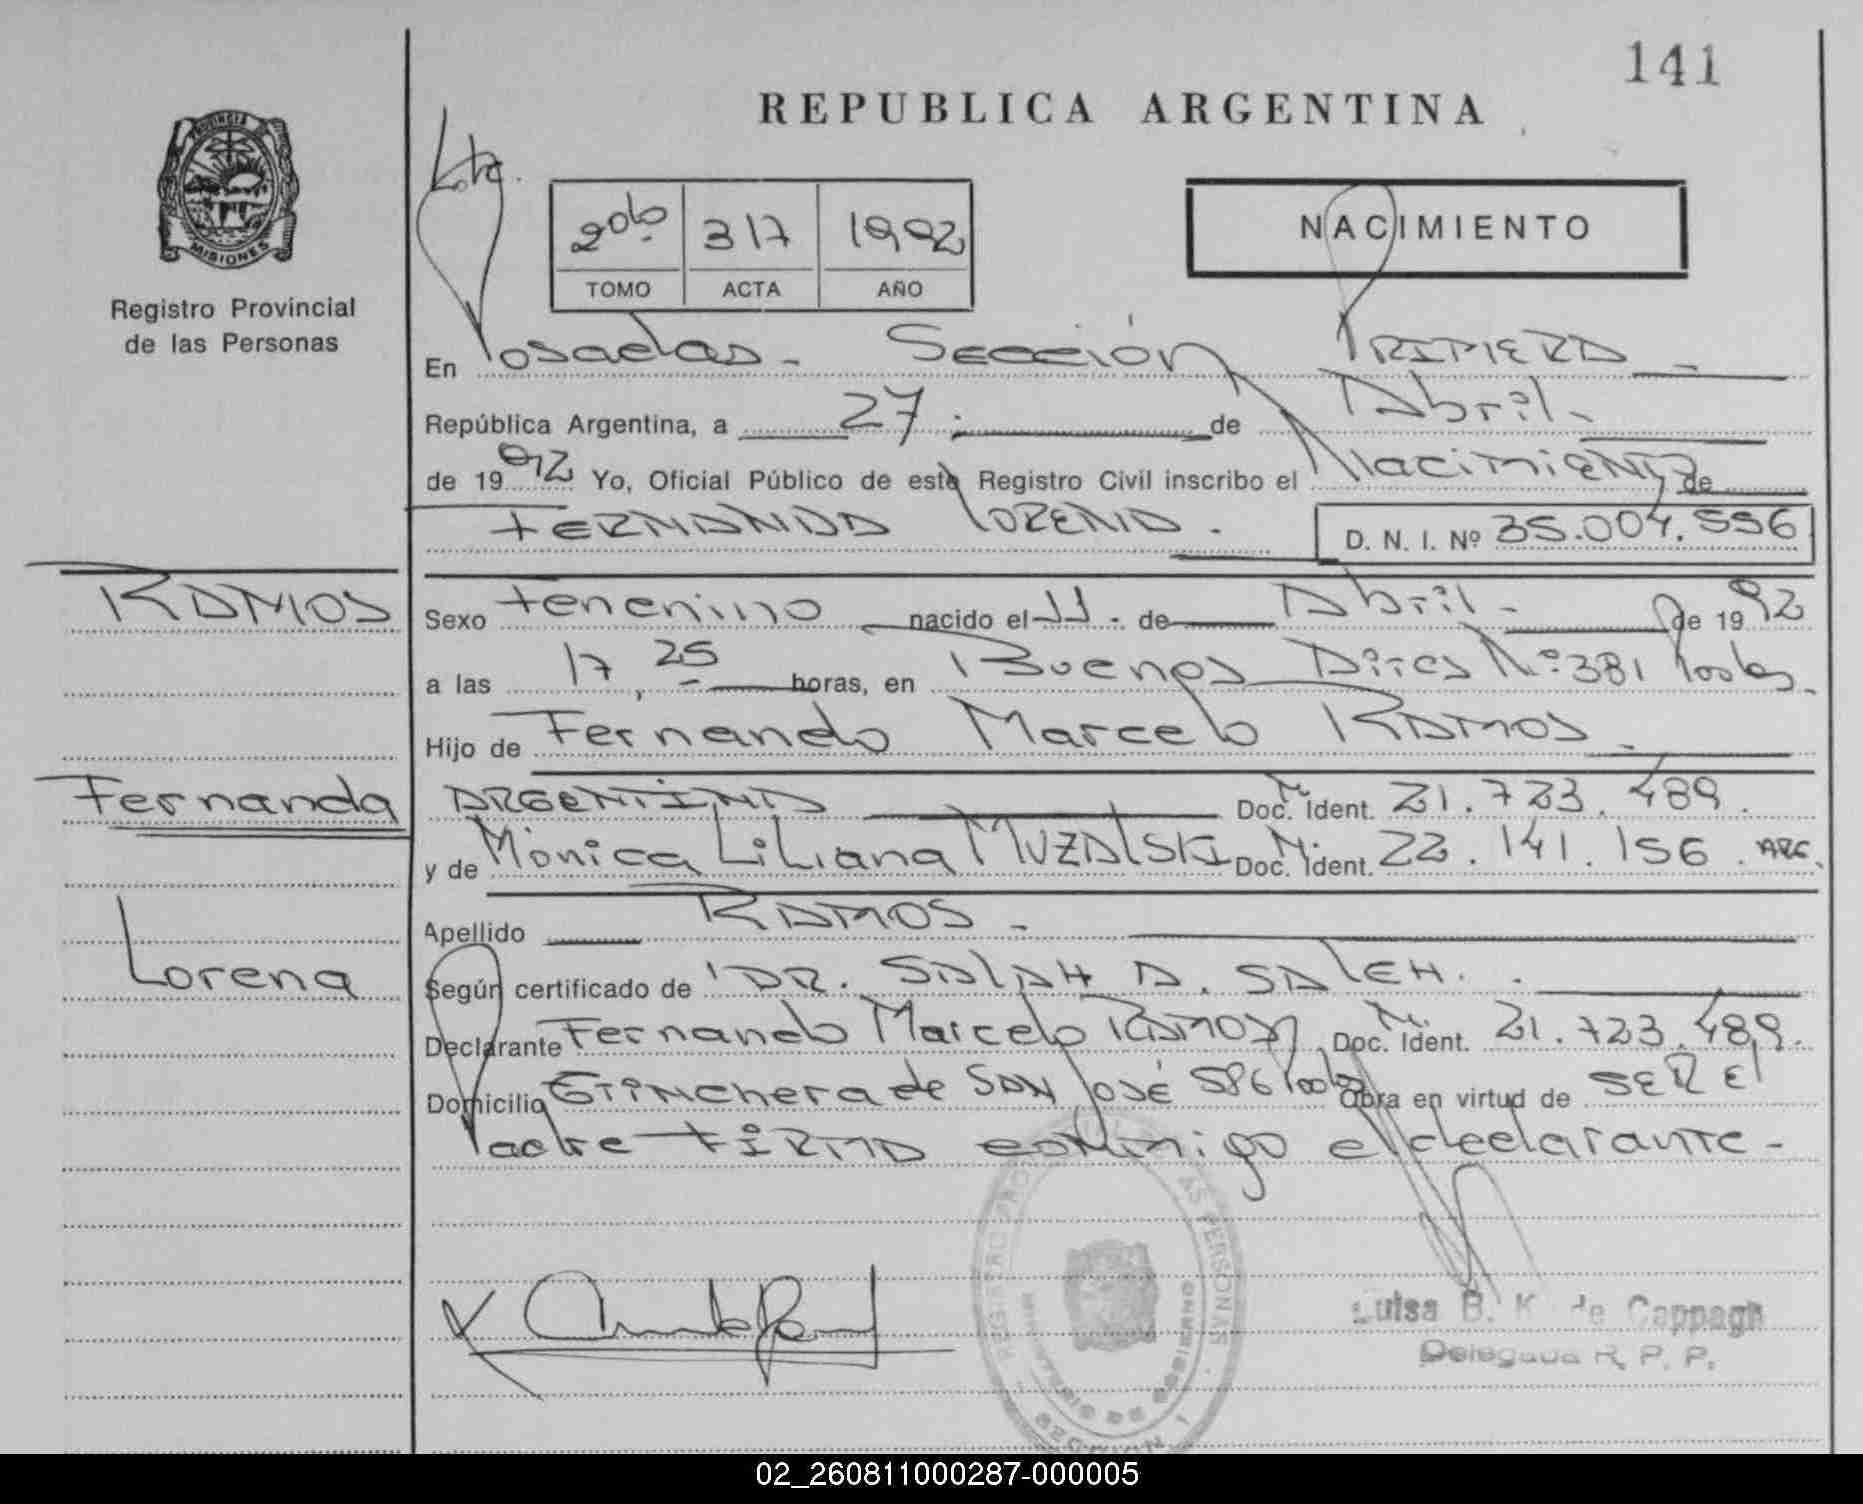 141
REPUBLICA ARGENTINA
PROVINCIA DE MISIONES
Registro Provincial
de las Personas
20b 317 1992
TOMO ACTA AÑO
NACIMIENTO
En Posadas - Sección PRIMERA -
República Argentina, a 27 de Abril -
de 1992 Yo, Oficial Público de este Registro Civil inscribo el Nacimiento de
FERNANDA LORENA. D. N. I. Nº 35.004.556
RAMOS
Fernanda
Lorena
Sexo Femenino nacido el 11 . de Abril - de 1992
a las 17,25 horas, en Buenos Aires Nº 381 Pdas.
Hijo de Fernando Marcelo RAMOS -
ARGENTINA Doc. M. Ident. 21.723.489.
y de Mónica Liliana MUZALSKI Doc. M. Ident. 22.141.156. ARG.
Apellido RAMOS -
Según certificado de DR. SALAH A. SALEH.
Declarante Fernando Marcelo RAMOS Doc. M. Ident. 21.723.489.
Domicilio Trinchera de SAN José 586 Obra en virtud de SER El
Padre FIRMA conmigo el declarante -
REGISTRO AS PERSONAS
MINISTERIO DE GOBIERNO
Luisa B. K. de Cappagli
Delegada R. P. P.
02_260811000287-000005